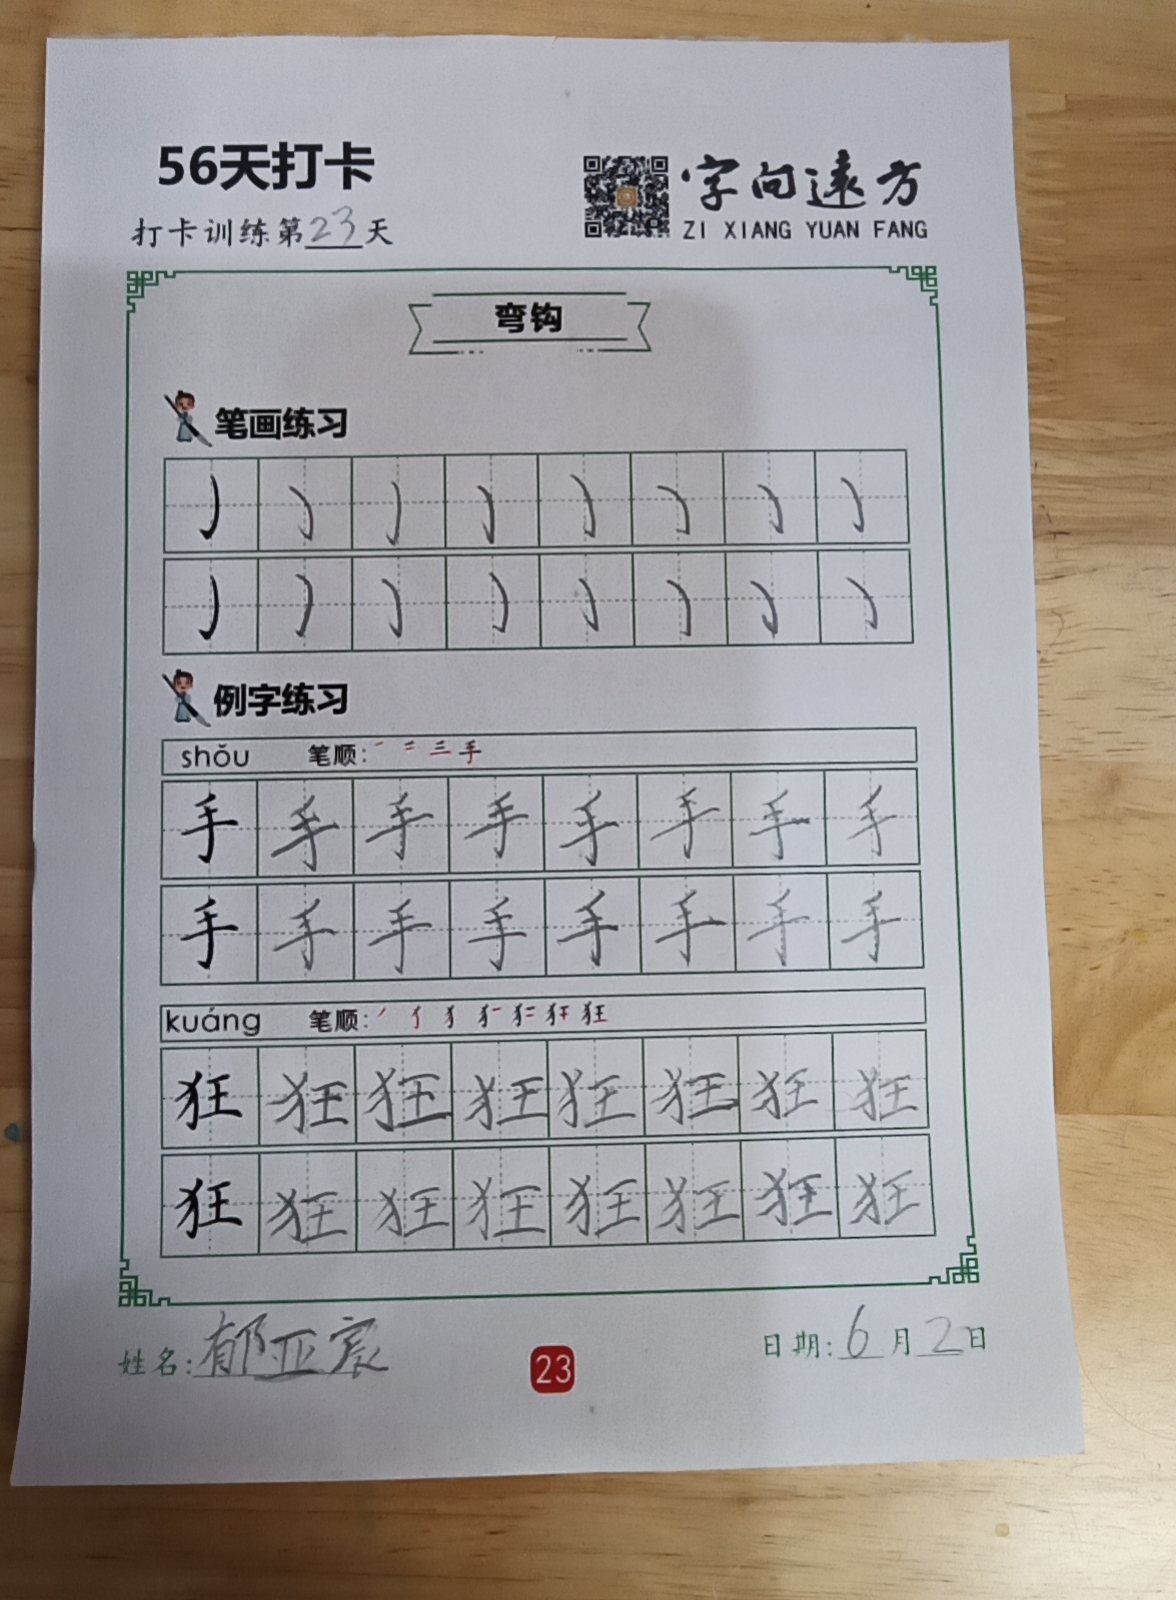 56天打卡
字向遠方
打卡训练第23天
ZI XIANG YUAN FANG
弯钩
笔画练习
例字练习
shǒu 笔顺: 一 二 三 手
手 手 手 手 手 手 手 手
手 手 手 手 手 手 手 手
kuáng 笔顺: 狂
狂 狂 狂 狂 狂 狂 狂 狂
狂 狂 狂 狂 狂 狂 狂 狂
姓名:郁亚宸
日期:6月2日
23